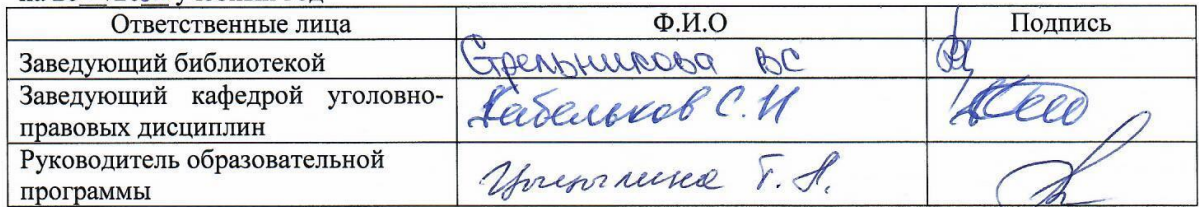 Ответственные лица Ф.И.О Подпись
Заведующий библиотекой Стрельникова ВС
Заведующий кафедрой уголовно-
правовых дисциплин Кабельков С.Н
Руководитель образовательной
программы Т.А.